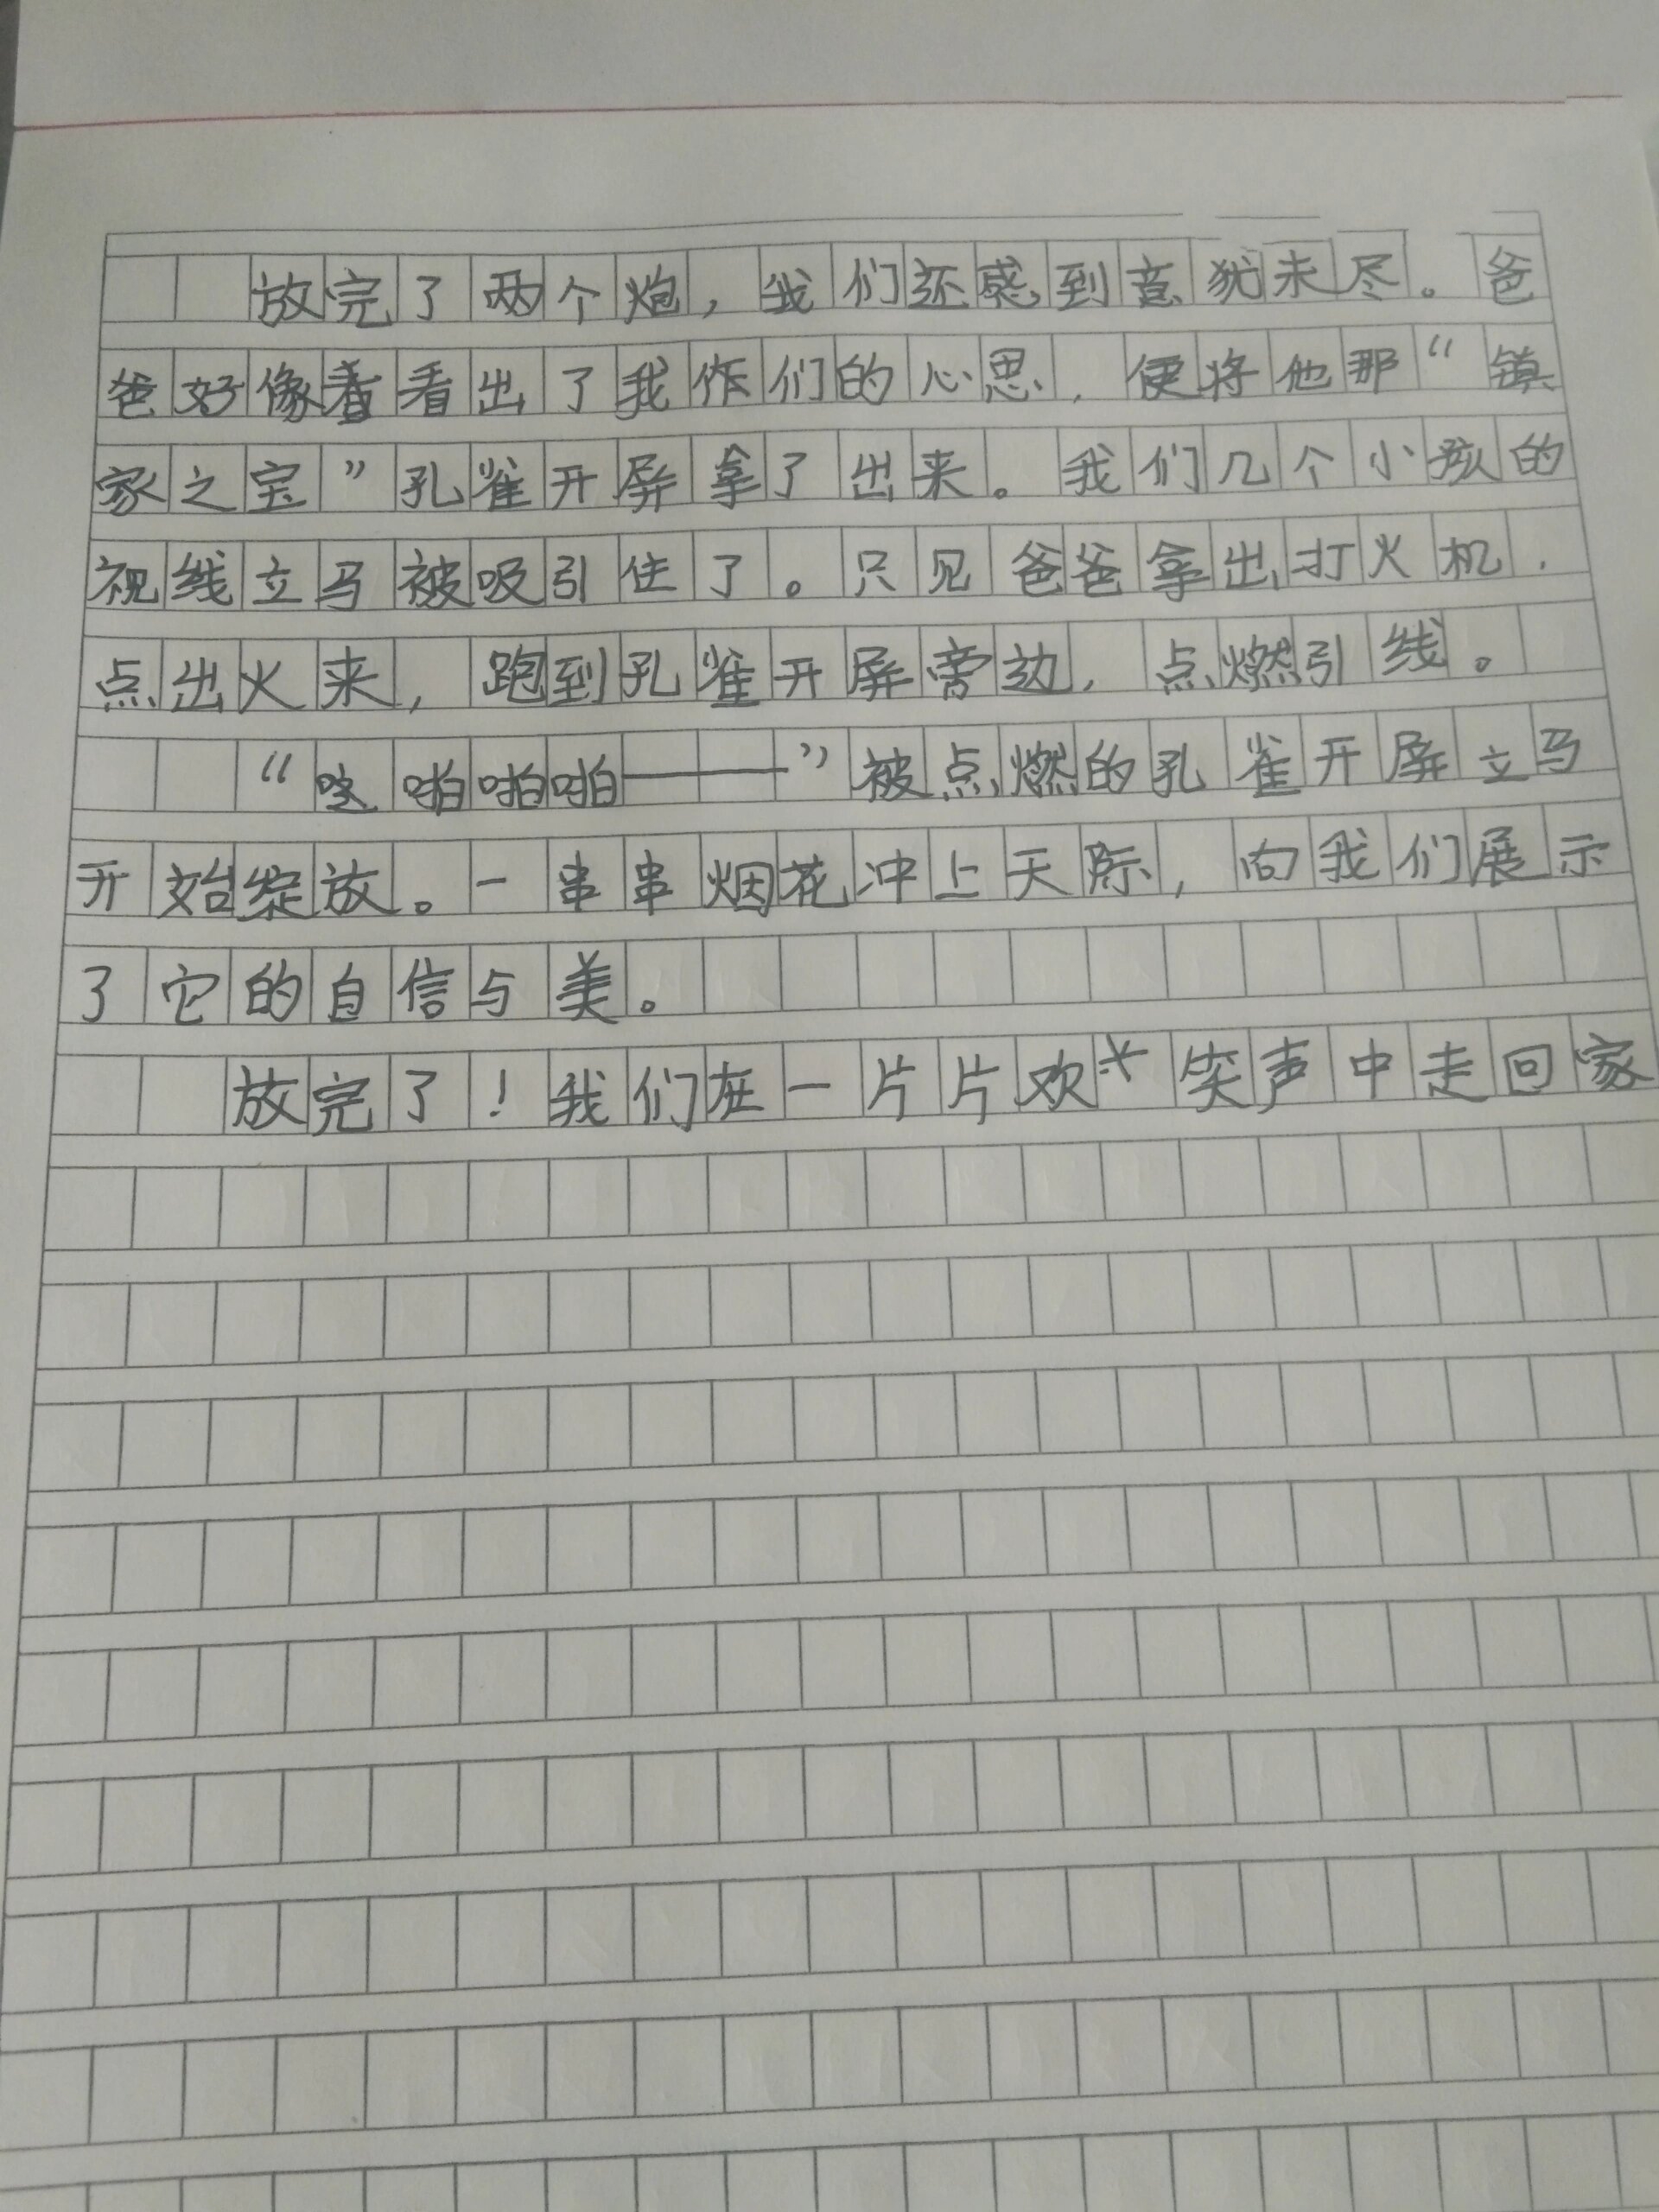 放完了两个炮，我们还感到意犹未尽。爸
爸好像看出了我们的心思，便将他那“镇
家之宝”孔雀开屏拿了出来。我们几个小孩的
视线立马被吸引住了。只见爸爸拿出打火机，
点出火来，跑到孔雀开屏旁边，点燃引线。
“啪啪啪——”被点燃的孔雀开屏立马
开始绽放。一串串烟花冲上天际，向我们展示
了它的自信与美。
放完了！我们在一片片欢笑声中走回家